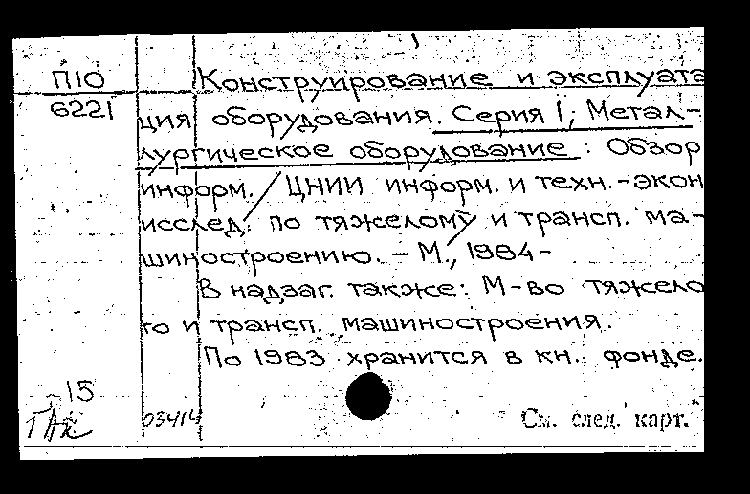 П10 Конструирование и эксплуата
6221 ция оборудования. Серия 1, Метал-
лургическое оборудование: Обзор
информ. / ЦНИИ информ. и техн.-экон
исслед. по тяжелому и трансп. ма-
шиностроению. - М., 1984-
В надзаг. также: М-во тяжело
го и трансп. машиностроения.
По 1983 хранится в кн. фонде.
-15
03414 См. след. карт.